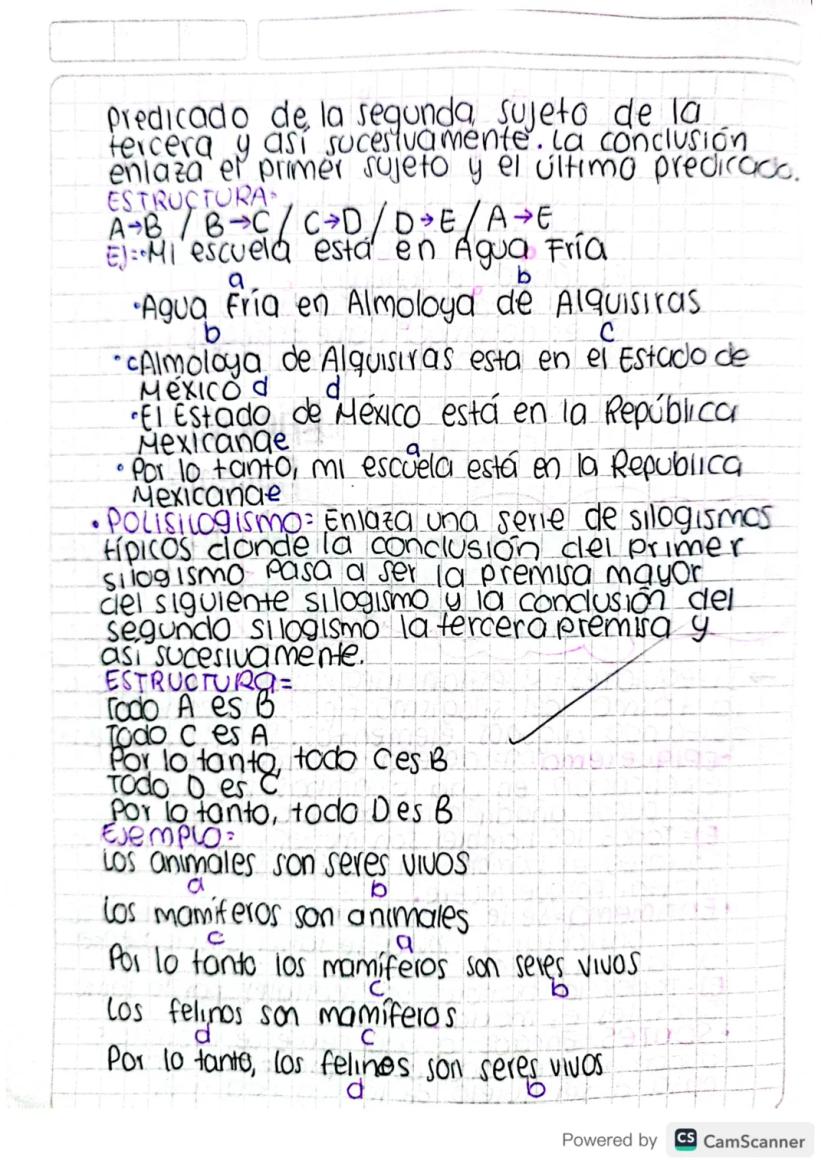 predicado de la segunda, sujeto de la
tercera y así sucesivamente. La conclusión
enlaza el primer sujeto y el último predicado.
ESTRUCTURA:
A→B / B→C / C→D / D→E / A→E
Ej:•Mi escuela está en Agua Fría
a b
•Agua Fría en Almoloya de Alquisiras
b c
•cAlmoloya de Alquisiras esta en el Estado de
México d d
•El Estado de México está en la República
Mexicanae a
•Por lo tanto, mi escuela está en la Republica
Mexicanae
•POLISILOGISMO= Enlaza una serie de silogismos
típicos donde la conclusión del primer
silogismo pasa a ser la premisa mayor
del siguiente silogismo y la conclusión del
segundo silogismo la tercera premisa y
asi sucesivamente.
ESTRUCTURA=
Todo A es B
Todo C es A
Por lo tanto, todo C es B
Todo D es C
Por lo tanto, todo D es B
EJEMPLO=
Los animales son seres vivos
a b
Los mamíferos son animales
c a
Por lo tanto los mamíferos son seres vivos
c b
Los felinos son mamíferos
d c
Por lo tanto, los felinos son seres vivos
d b
Powered by CS CamScanner